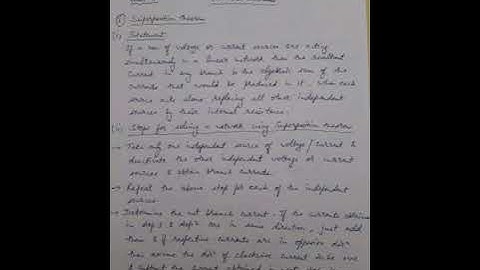 ① Superposition Theorem
(i) Statement
If a no. of voltage or current sources are acting
simultaneously in a linear network then the resultant
current in any branch is the algebraic sum of the
currents that would be produced in it, when each
source acts alone replacing all other independent
sources by their internal resistance.
(ii) Steps for solving a network using Superposition theorem
→ Take only one independent source of voltage / current &
deactivate the other independent voltage or current
sources & obtain branch currents.
→ Repeat the above step for each of the independent
sources.
→ Determine the net branch current - If the currents obtained
in step 1 & step 2 are in same direction, just add
them & if respective currents are in opposite dirn
then assume the dirn of electric current to be
& subtract the current obtained in next